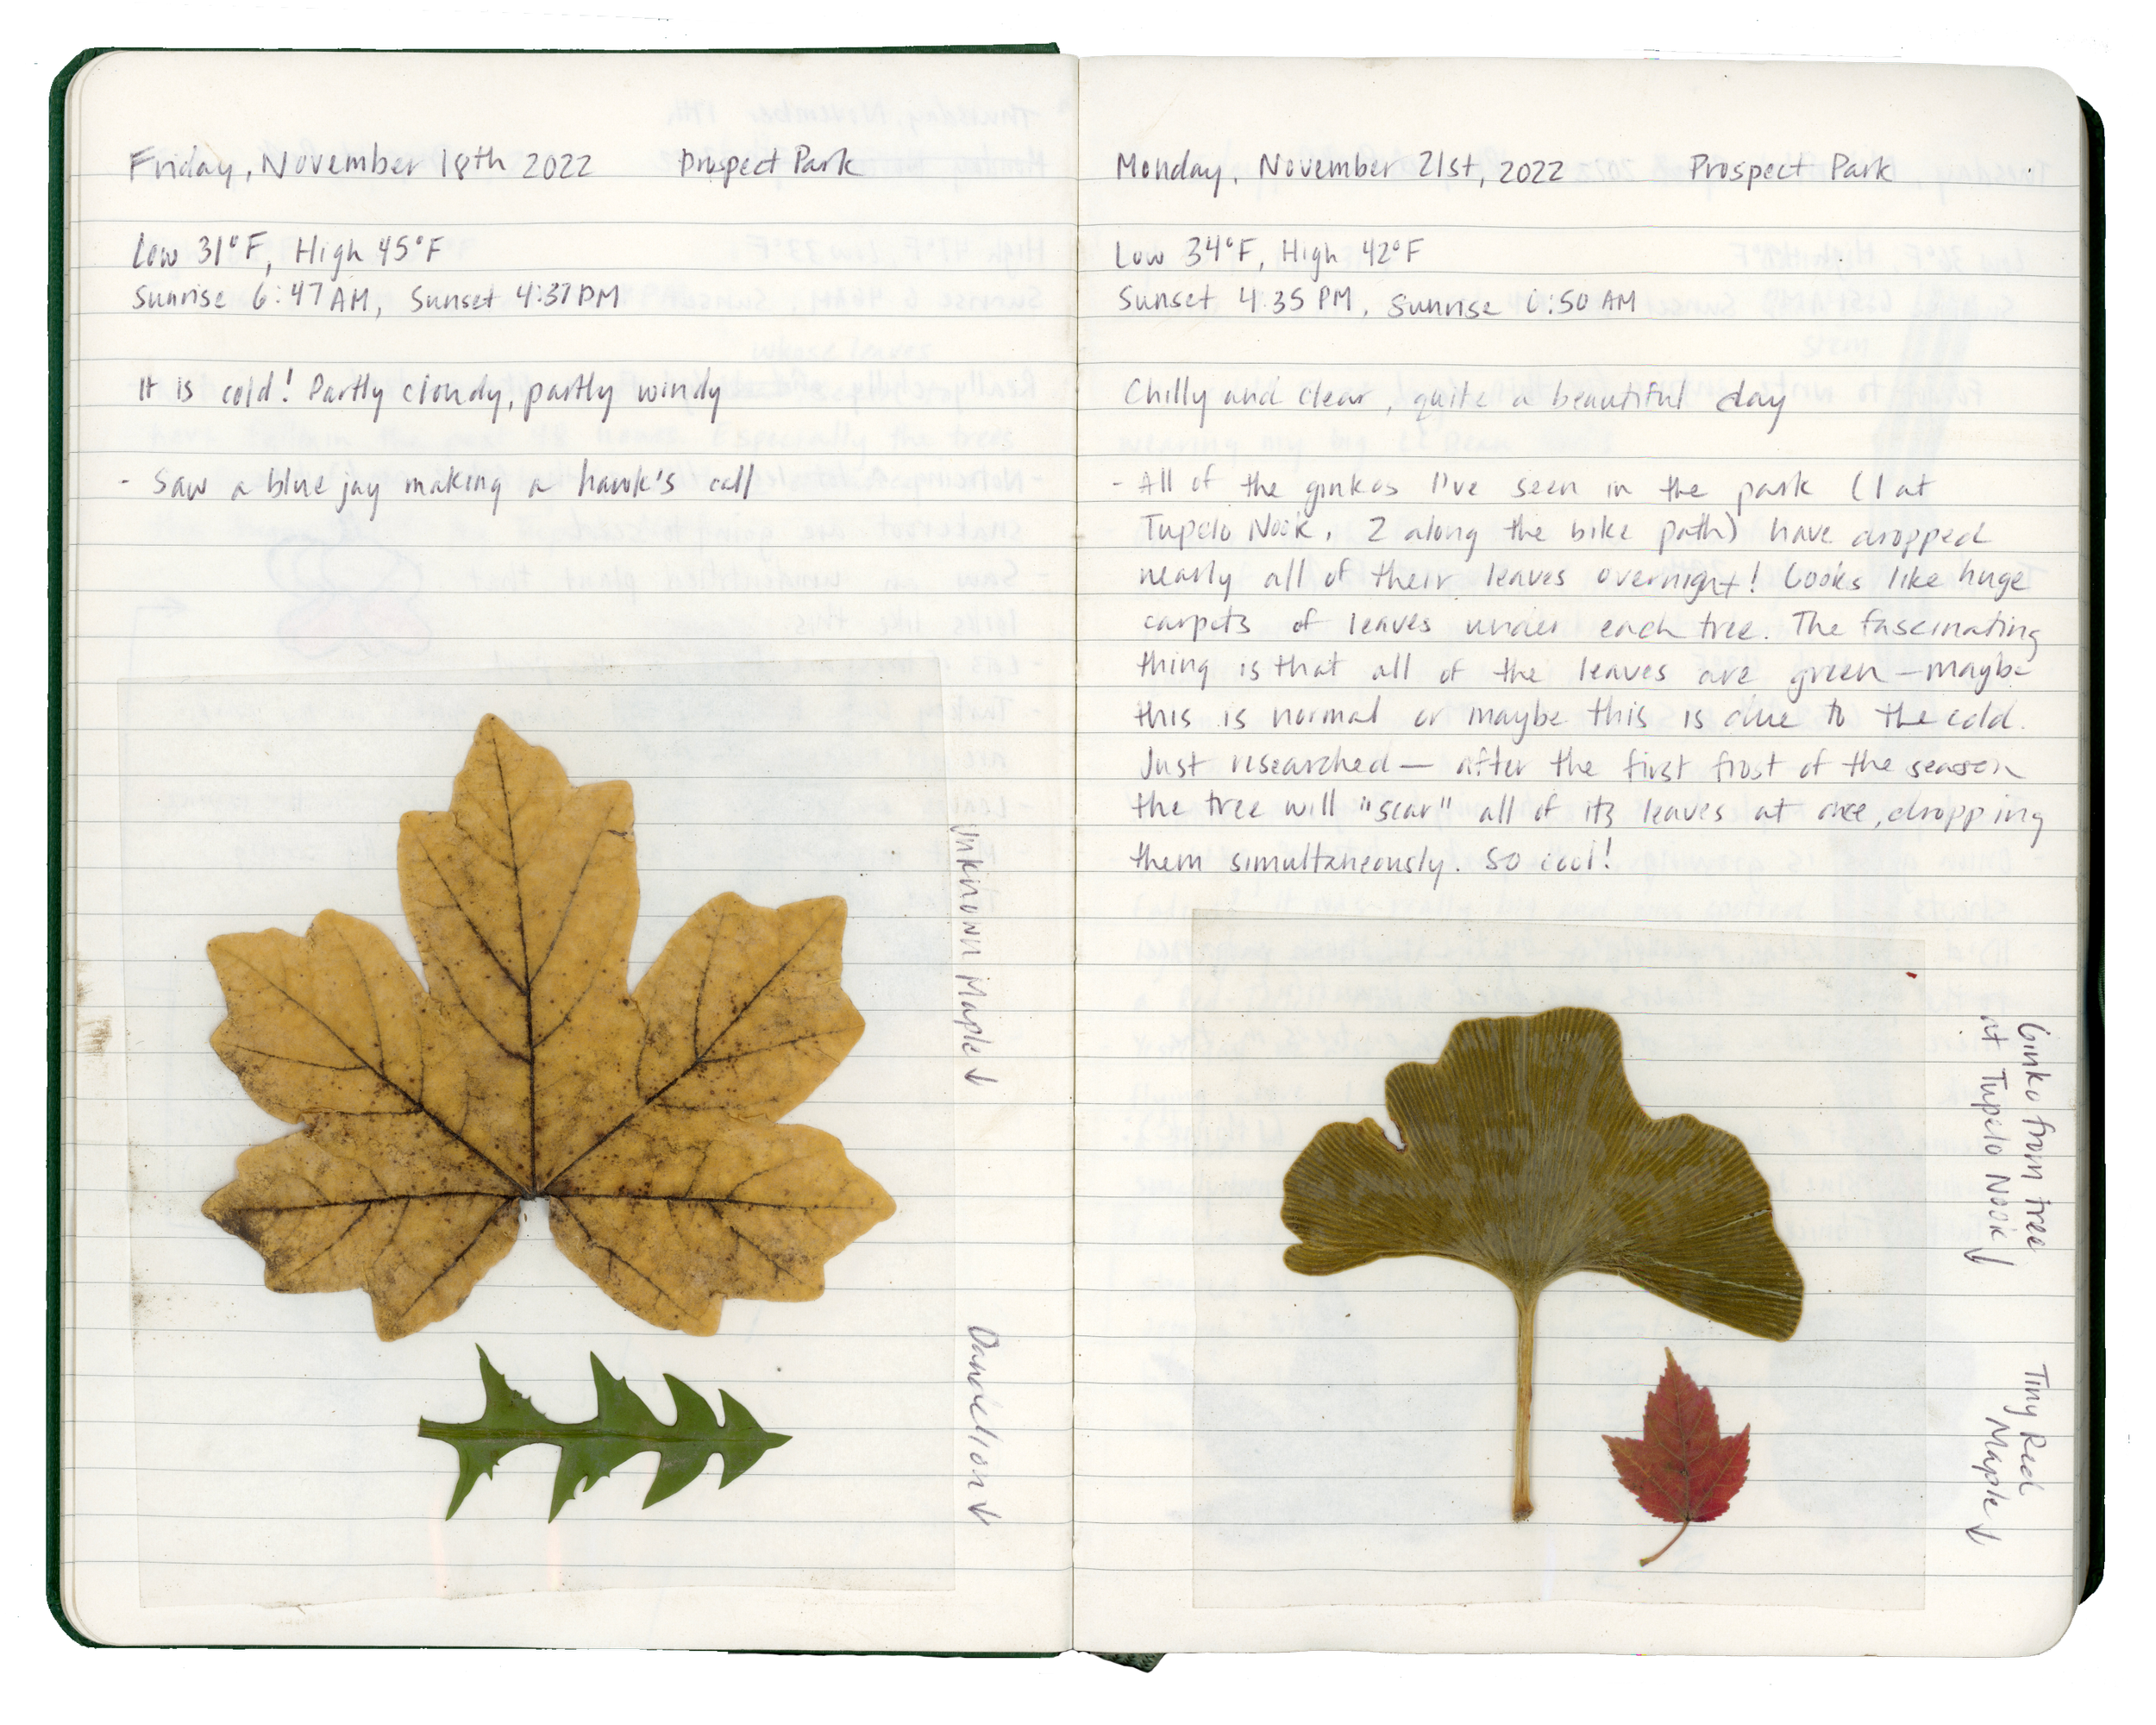 Friday, November 18th 2022 Prospect Park
Low 31°F, High 45°F
Sunrise 6:47 AM, Sunset 4:37 PM
It is cold! Partly cloudy, partly windy
- Saw a blue jay making a hawk's call
Unknown Maple ↓
Dandelion ↓
Monday, November 21st, 2022 Prospect Park
Low 34°F, High 42°F
Sunset 4:35 PM, Sunrise 6:50 AM
Chilly and clear, quite a beautiful day
- All of the ginkos I've seen in the park (1 at
Tupelo Nook, 2 along the bike path) have dropped
nearly all of their leaves overnight! Looks like huge
carpets of leaves under each tree. The fascinating
thing is that all of the leaves are green — maybe
this is normal or maybe this is due to the cold.
Just researched — after the first frost of the season
the tree will "scar" all of its leaves at once, dropping
them simultaneously. So cool!
Ginko from tree
at Tupelo Nook ↓
Tiny Red
Maple ↓